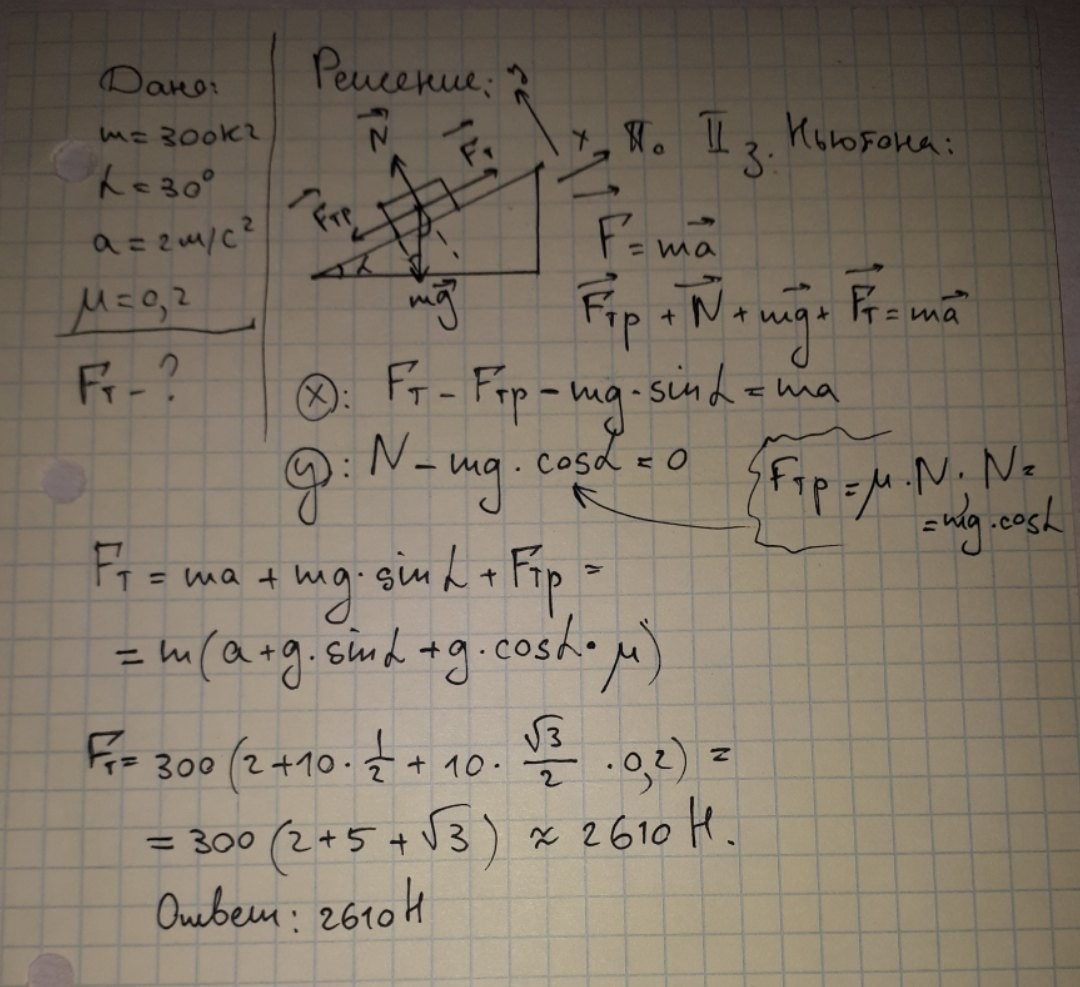 Дано:
m = 300 кг
α = 30°
a = 2 м/с²
μ = 0,2
Fт - ?
Решение:
N
Fт
x
Fтр
α
mg
П. II з. Ньютона:
F = ma
Fтр + N + mg + Fт = ma
(x): Fт - Fтр - mg · sinα = ma
(y): N - mg · cosα = 0
Fтр = μ · N; N =
= mg · cosα
Fт = ma + mg · sinα + Fтр =
= m(a + g · sinα + g · cosα · μ)
Fт = 300 (2 + 10 · 1/2 + 10 · √3/2 · 0,2) =
= 300 (2 + 5 + √3) ≈ 2610 Н.
Ответ: 2610 Н